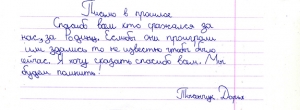 Письмо в прошлое
Спасибо вам кто сражался за
нас, за Родину. Еслибы они проиграли
или здались то не известно чтобы было
сейчас. Я хочу сказать спасибо вам. Мы
будем помнить!
Дарья